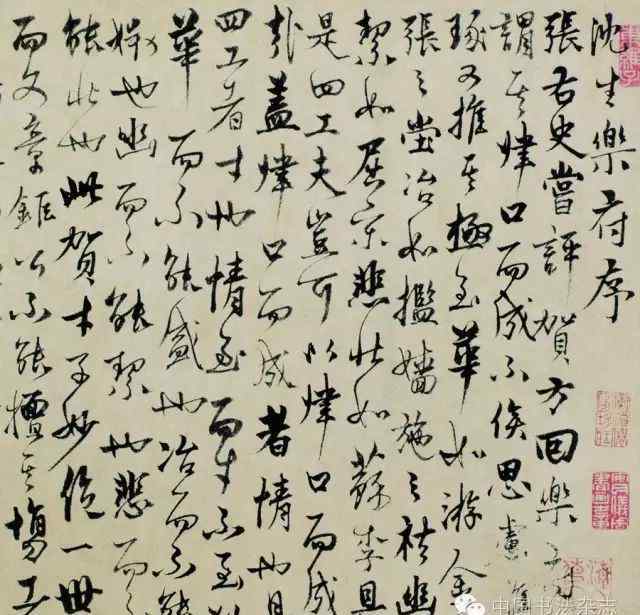 沈生樂府序
張右史嘗評賀方回樂府
謂其肆口而成不俟思慮雕
琢又推其極至華如游金
張之堂冶如攬嬙施之袪幽
絜如屈宋悲壯如蘇李具
是四工夫豈可以肆口而成
哉蓋肆口而成者情也具
四工者才也情至而才不至
華而不能盛也冶而不能
也幽而不能絜也悲而不
能壯也此賀才子妙絕一世
而文章鉅公不能擅其場
中国书法杂志